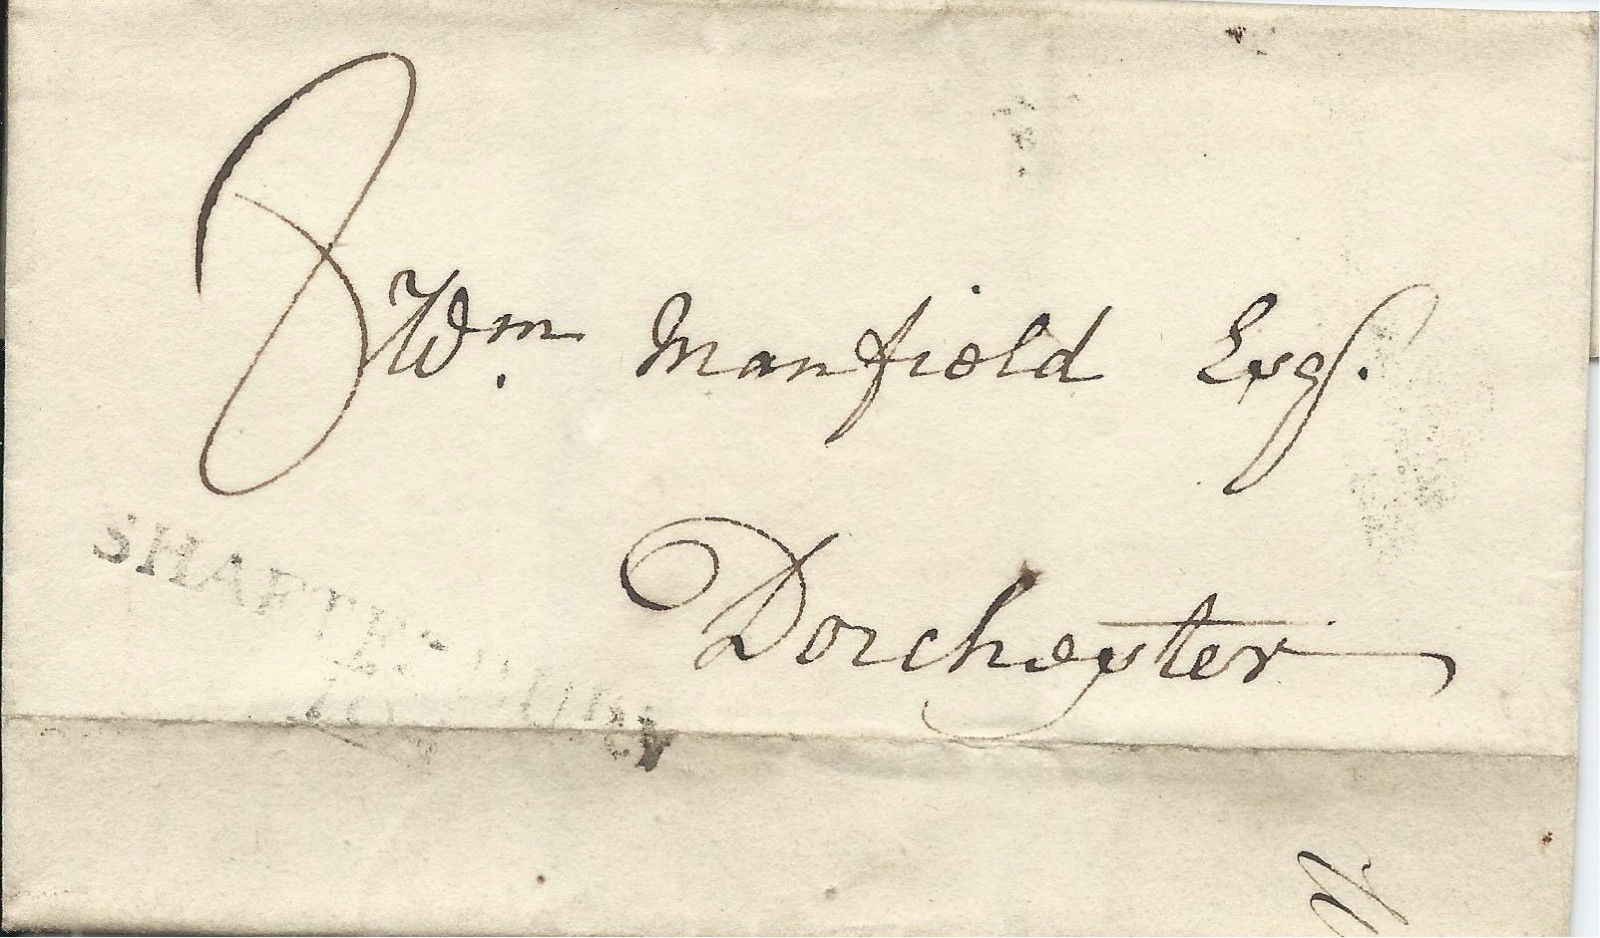 8
Wm. Manfield Esqr.
Dorchester
SHAFTESBURY